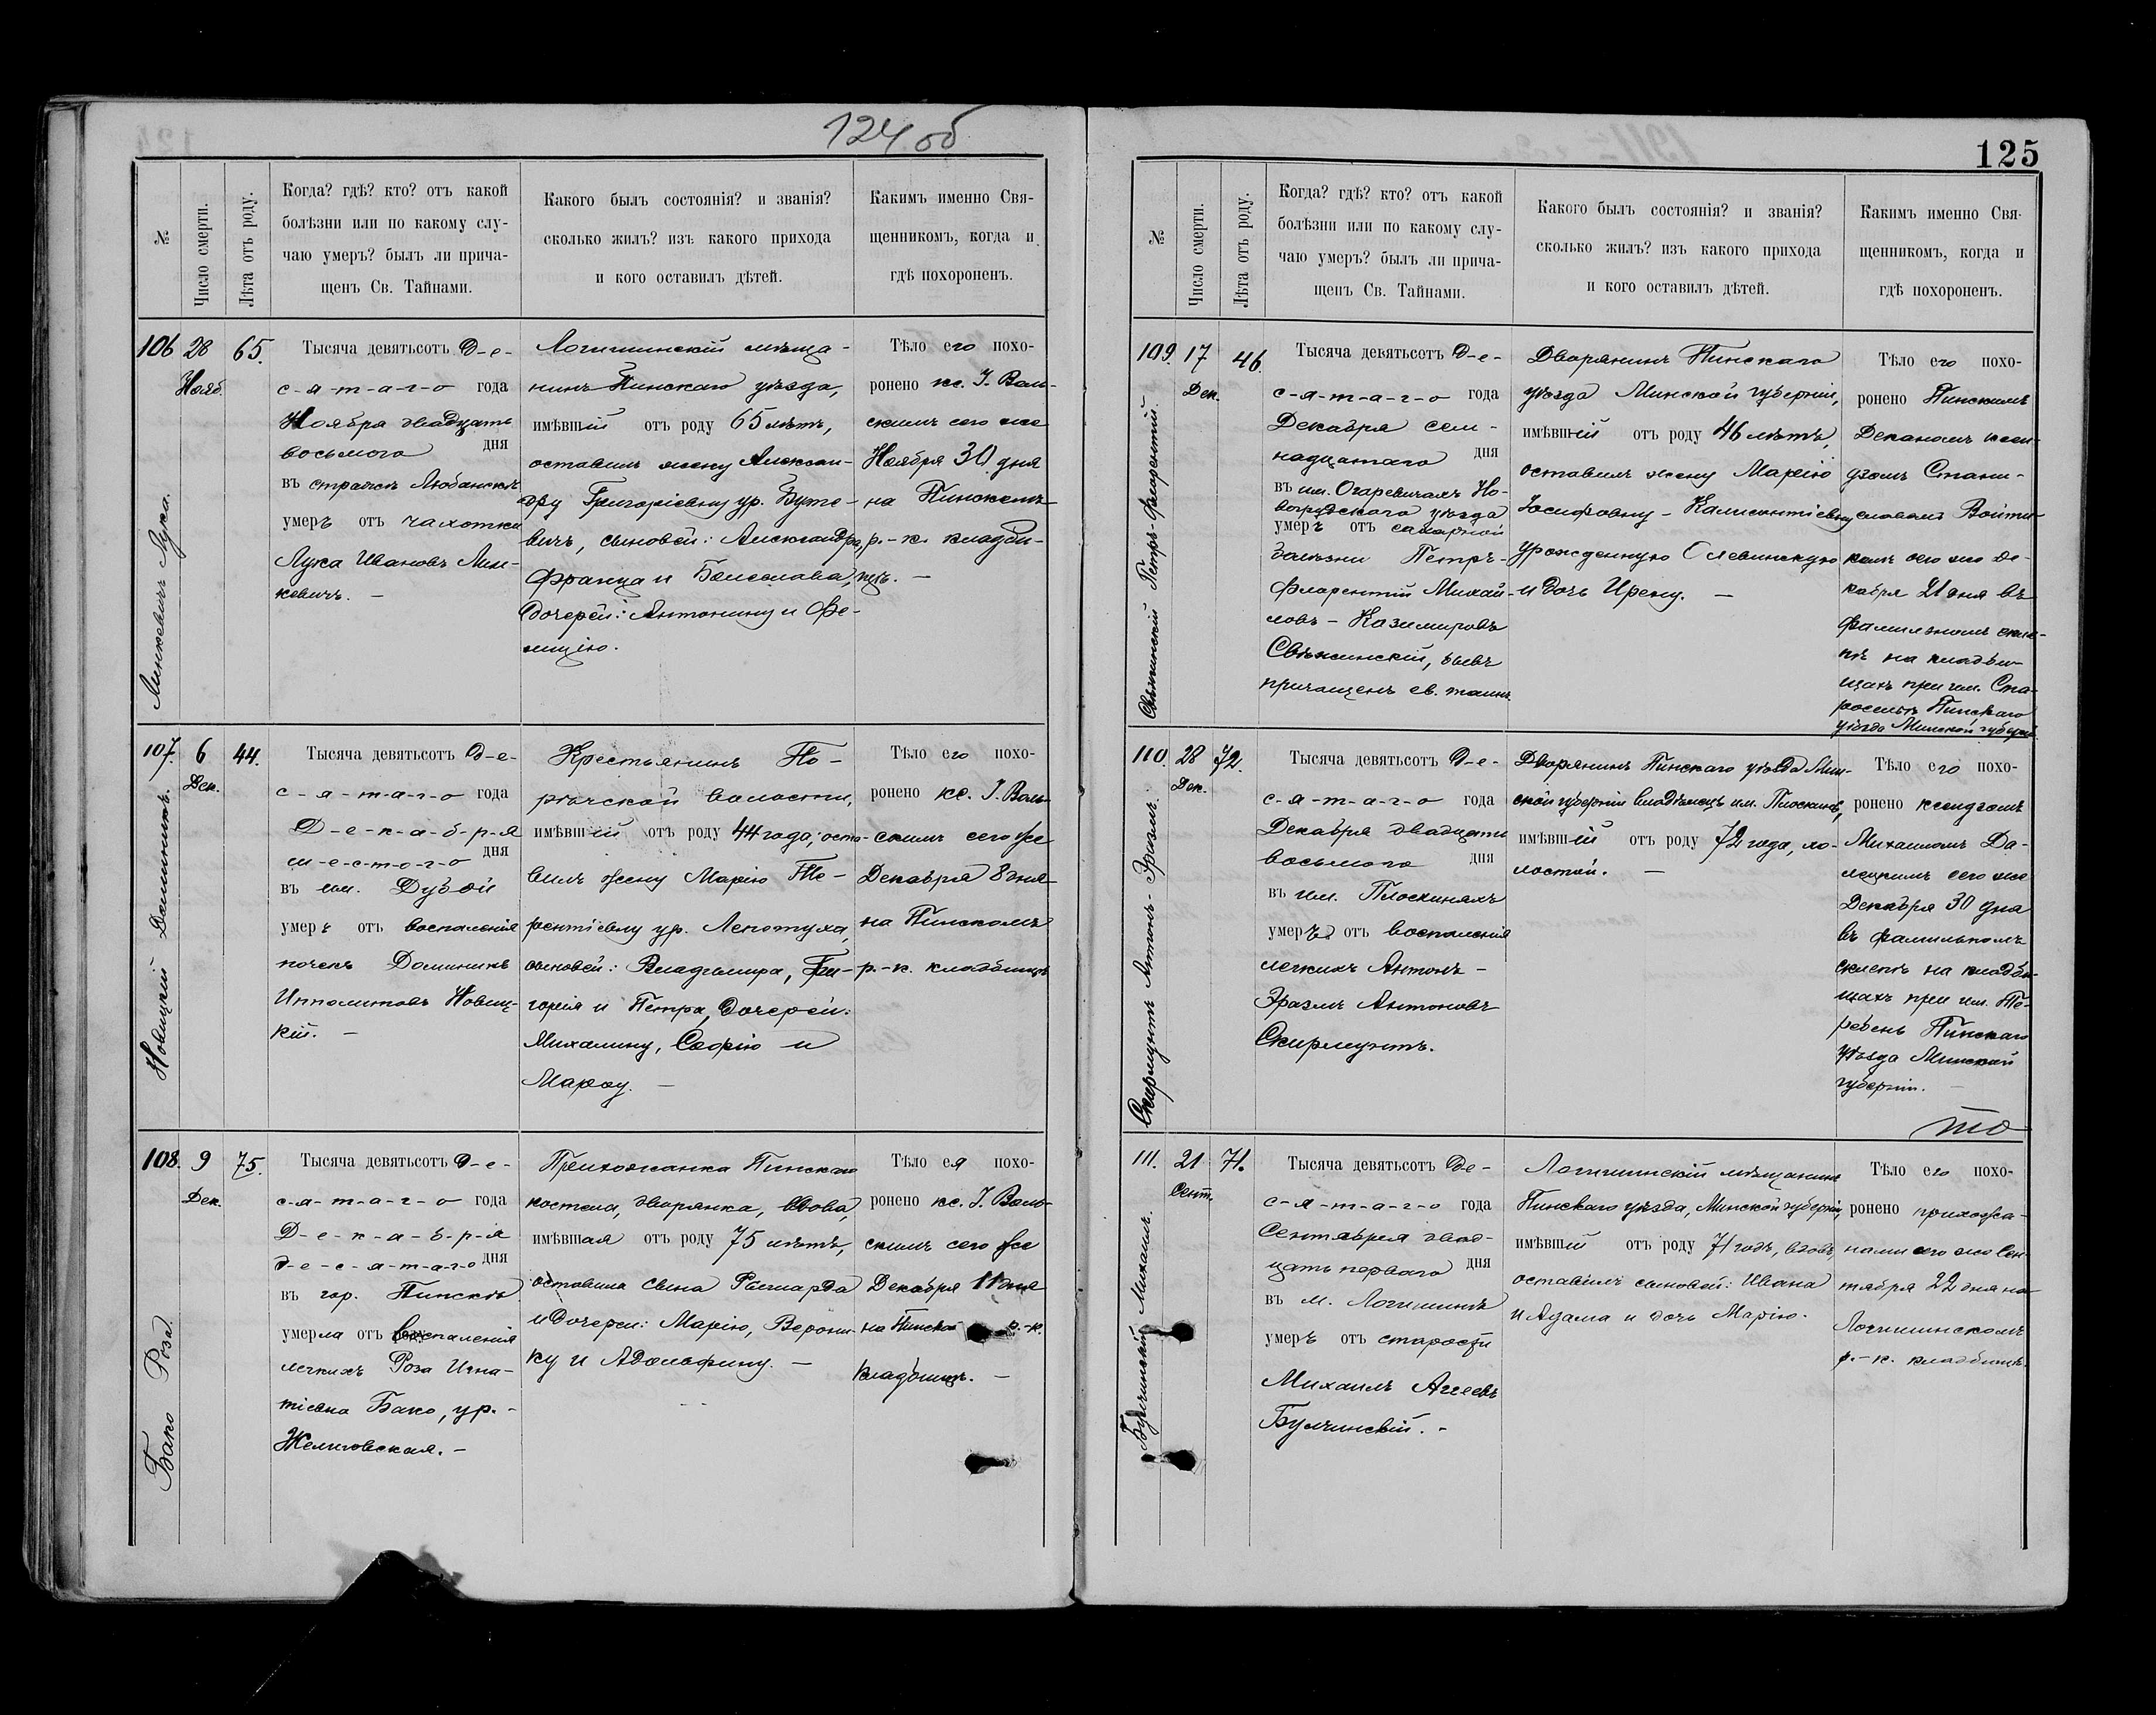 124 об
№
Число смерти.
Лѣта отъ роду.
Когда? гдѣ? кто? отъ какой
болѣзни или по какому слу-
чаю умеръ? былъ ли прича-
щенъ Св. Тайнами.
Какого былъ состоянія? и званія?
сколько жилъ? изъ какого прихода
и кого оставилъ дѣтей.
Какимъ именно Свя-
щенникомъ, когда и
гдѣ похороненъ.
106
Линкевичъ Лука.
28
Нояб.
65.
Тысяча девятьсотъ Д-е-
с-я-т-а-г-о года
Ноября двадцать
восьмого дня
въ стражѣ Любанской
умеръ отъ чахотки
Лука Ивановъ Лин-
кевичъ. —
Логишинскій мѣща-
нинъ Пинскаго уѣзда,
имѣвшій отъ роду 65 лѣтъ,
оставилъ жену Алексан-
дру Григоріевну ур. Буте-
вичъ, сыновей: Александра,
Франца и Болеслава,
дочерей: Антонину и Фе-
лицію.
Тѣло его похо-
ронено кс. I. Воль-
скимъ сего же
Ноября 30 дня
на Пинскомъ
р.-к. кладби-
щѣ. —
107.
Новицкій Доминикъ.
6
Дек.
44.
Тысяча девятьсотъ Д-е-
с-я-т-а-г-о года
Д-е-к-а-б-р-я
ш-е-с-т-о-г-о дня
въ им. Дубой
умеръ отъ воспаленія
почекъ Доминикъ
Ипполитовъ Новиц-
кій. —
Крестьянинъ По-
рѣчской волости,
имѣвшій отъ роду 44 года; оста-
вилъ жену Марію Те-
рентіевну ур. Лепотуха,
сыновей: Владиміра, Гри-
горія и Петра, дочерей:
Михалину, Софію и
Марѳу. —
Тѣло его похо-
ронено кс. I. Воль-
скимъ сего же
Декабря 8 дня
на Пинскомъ
р.-к. кладбищѣ
108.
Бако Роза.
9
Дек.
75.
Тысяча девятьсотъ Д-е-
с-я-т-а-г-о года
Д-е-к-а-б-р-я
д-е-с-я-т-а-г-о дня
въ гор. Пинскѣ
умерла отъ воспаленія
легкихъ Роза Игна-
тіевна Бако, ур.-
Желиговская. —
Прихожанка Пинскаго
костела, дворянка, вдова,
имѣвшая отъ роду 75 лѣтъ,
оставила сына Рышарда
и дочерей: Марію, Верони-
ку и Адольфину. —
Тѣло ея похо-
ронено кс. I. Воль-
скимъ сего же
Декабря 11 дня
на Пинско р.-к.
кладбищѣ. —
125
№
Число смерти.
Лѣта отъ роду.
Когда? гдѣ? кто? отъ какой
болѣзни или по какому слу-
чаю умеръ? былъ ли прича-
щенъ Св. Тайнами.
Какого былъ состоянія? и званія?
сколько жилъ? изъ какого прихода
и кого оставилъ дѣтей.
Какимъ именно Свя-
щенникомъ, когда и
гдѣ похороненъ.
109.
Свѣжинскій Петръ-Флорентій.
17
Дек.
46.
Тысяча девятьсотъ Д-е-
с-я-т-а-г-о года
Декабря сем-
надцатаго дня
въ им. Огаревичахъ Но-
вогрудскаго уѣзда
умеръ отъ сахарной
болѣзни Петръ-
Флорентій Михай-
ловъ - Казимировъ
Свѣжинскій, бывъ
причащенъ св. таинъ.
Дворянинъ Пинскаго
уѣзда Минской губерніи,
имѣвшій отъ роду 46 лѣтъ,
оставилъ жену Марію
Іосифовну - Каликстіевну
урожденную Олевинскую
и дочь Ирену. —
Тѣло его похо-
ронено Пинскимъ
Деканомъ ксен-
дзомъ Стани-
славомъ Войти-
комъ сего же де-
кабря 21 дня въ
фамильномъ скле-
пѣ на кладби-
щахъ при им. Ста-
роселье Пинскаго
уѣзда Минской губерніи
110.
Скирмунтъ Антонъ-Эразмъ.
28
Дек.
72.
Тысяча девятьсотъ Д-е-
с-я-т-а-г-о года
Декабря двадцать
восьмого дня
въ им. Плоскиняхъ
умеръ отъ воспаленія
легкихъ Антонъ -
Эразмъ Антоновъ
Скирмунтъ.
Дворянинъ Пинскаго уѣзда Мин-
ской губерніи владѣлецъ им. Плоскинь,
имѣвшій отъ роду 72 года, хо-
лостой. —
Тѣло его похо-
ронено ксендзомъ
Михаиломъ Да-
лецкимъ сего же
Декабря 30 дня
въ фамильномъ
склепѣ на кладби-
щахъ при им. Те-
ребень Пинскаго
уѣзда Минской
губерніи. —
111.
Булчинскій Михаилъ.
21
Сент.
71.
Тысяча девятьсотъ Де-
с-я-т-а-г-о года
Сентября двад-
цать перваго дня
въ м. Логишинѣ
умеръ отъ старости
Михаилъ Агеевъ
Булчинскій. -
Логишинскій мѣщанинъ
Пинскаго уѣзда, Минской губерніи,
имѣвшій отъ роду 71 годъ, вдовъ,
оставилъ сыновей: Ивана
и Адама и дочь Марію.
Тѣло его похо-
ронено прихожа-
нами сего же Сен-
тября 22 дня на
Логишинскомъ
р.-к. кладбищѣ.